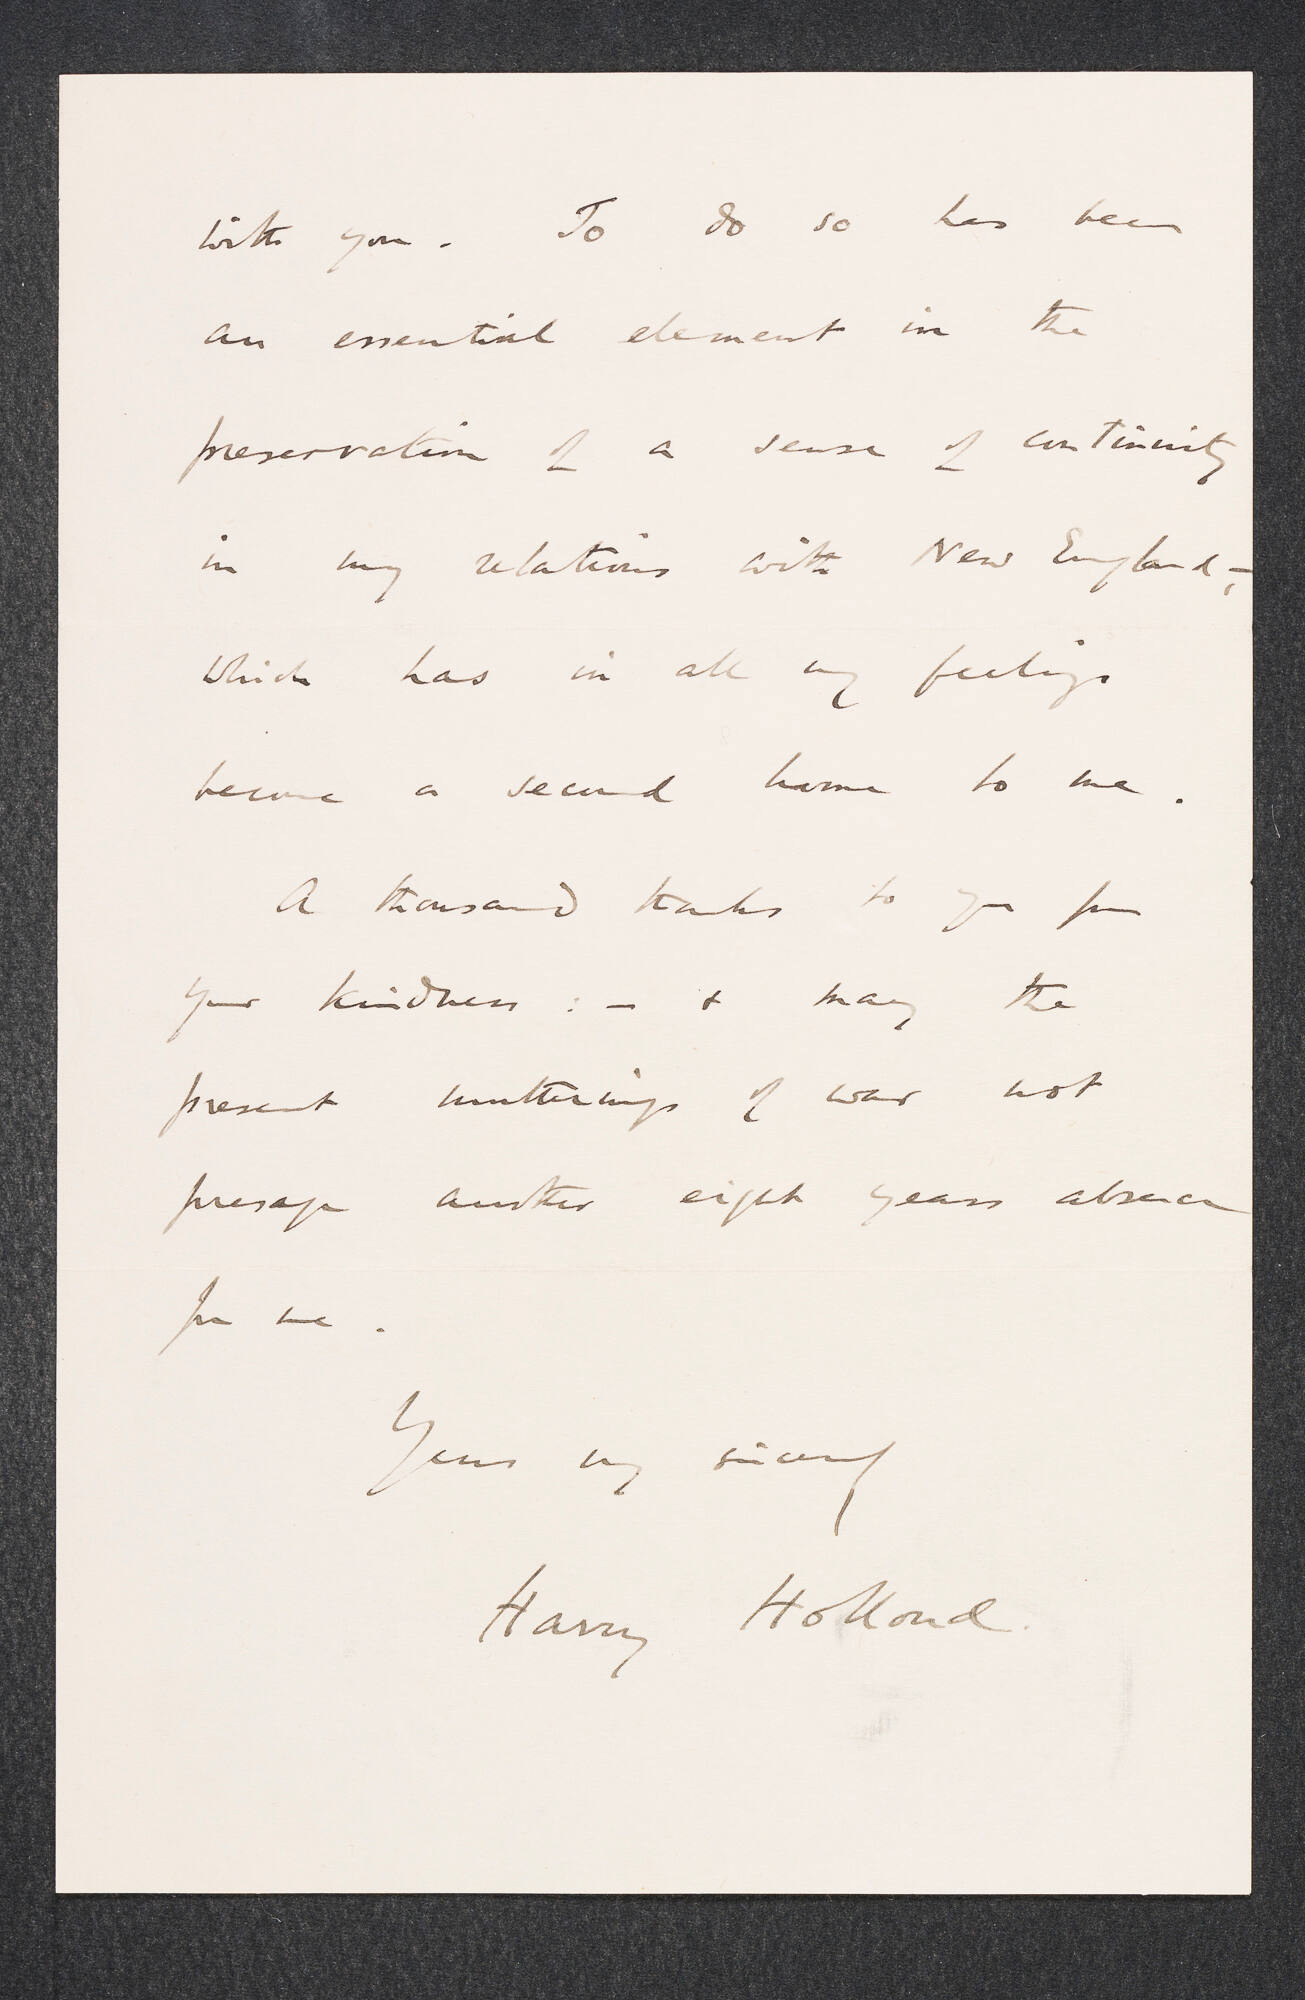 with you. To do so has been
an essential element in the
preservation of a sense of continuity
in my relations with New England,-
which has in all my feelings
become a second home to me.
A thousand thanks to you for
your kindness :- & may the
present mutterings of war not
presage another eight years absence
for me.
Yours very sincerely
Harry Hollond.